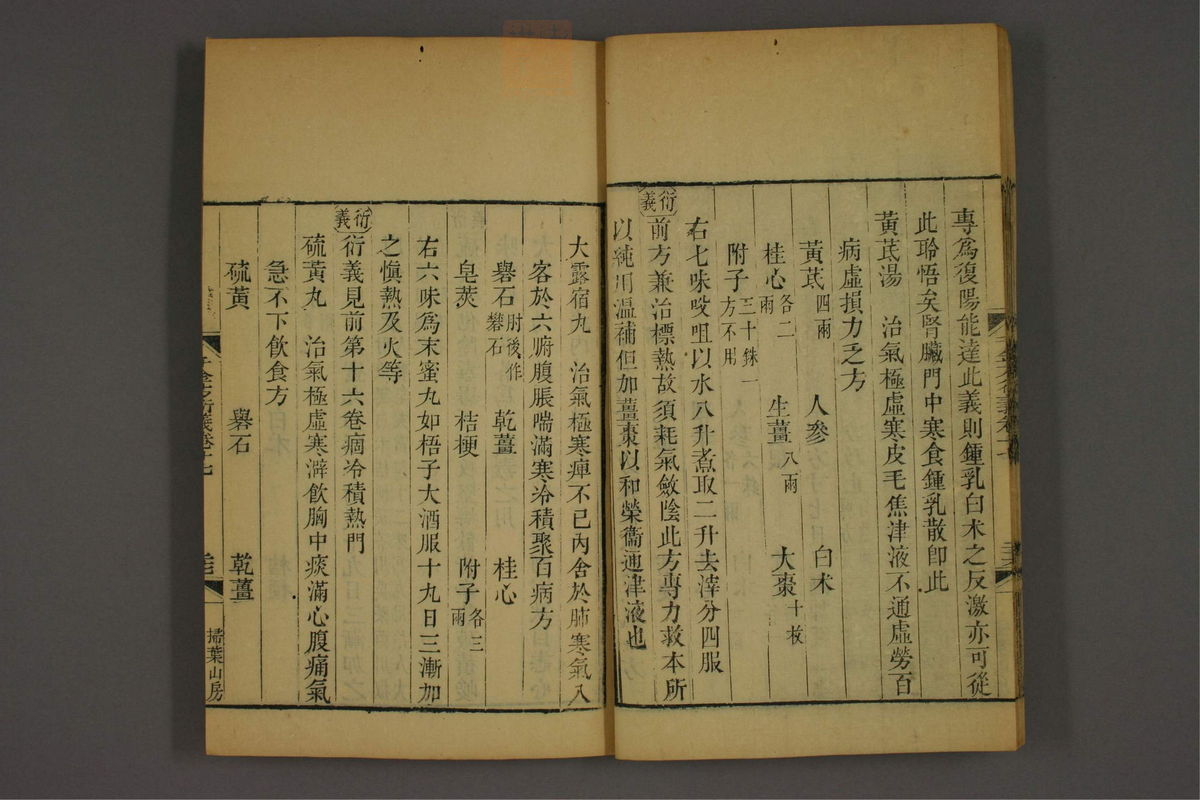 專爲復陽能達此義則鍾乳白朮之反激亦可從
此聆悟矣腎臟門中寒食鍾乳散卽此
黃芪湯　治氣極虛寒皮毛焦津液不通虛勞百
病虛損力乏方
黃芪四兩　人參　白朮
桂心各二兩　生薑八兩　大棗十枚
附子三十銖一方不用
右七味㕮咀以水八升煮取二升去滓分四服
衍義
前方兼治標熱故須耗氣斂陰此方專力救本所
以純用溫補但加薑棗以和榮衞通津液也
大露宿丸　治氣極寒痺不已內舍於肺寒氣入
客於六腑腹脹喘滿寒冷積聚百病方
礜石肘後作礬石　乾薑　桂心
皂莢　桔梗　附子各三兩
右六味爲末蜜丸如梧子大酒服十丸日三漸加
之愼熱及火等
衍義
衍義見前第十六卷痼冷積熱門
硫黃丸　治氣極虛寒澼飲胸中痰滿心腹痛氣
急不下飲食方
硫黃　礜石　乾薑
千金方衍義卷十七
掃葉山房